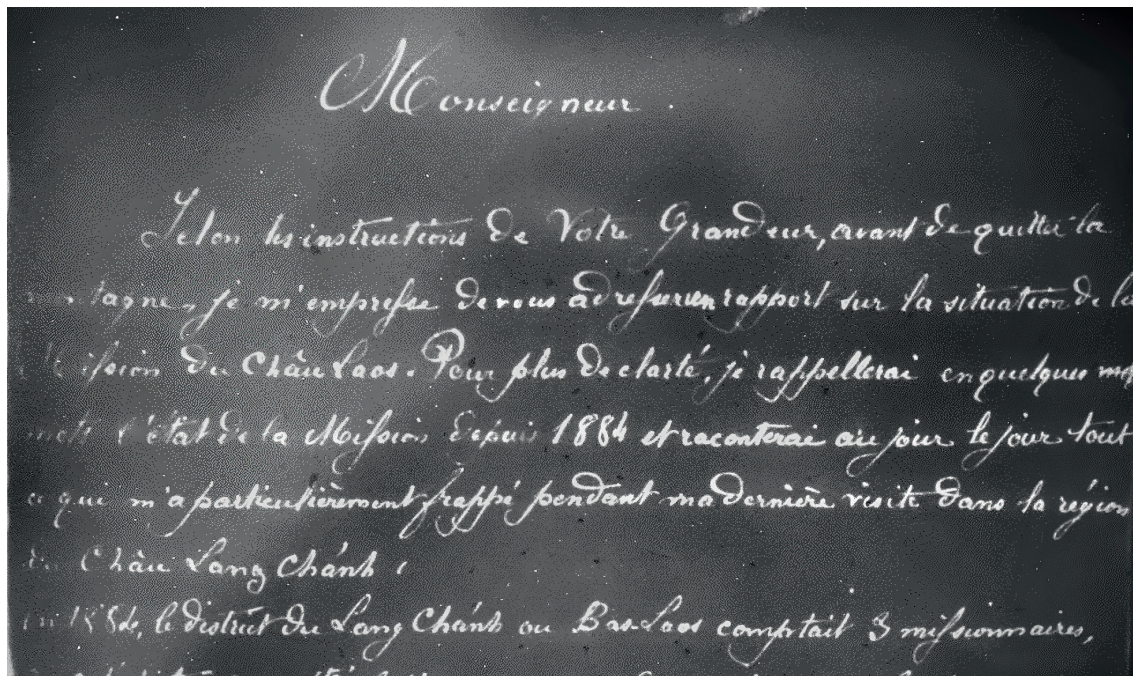 Monseigneur.
Selon les instructions de Votre Grandeur, avant de quitter la
montagne, je m'empresse de vous adresser un rapport sur la situation de la
Mission du Châu Laos. Pour plus de clarté, je rappellerai en quelques
mots l'état de la Mission depuis 1884 et raconterai au jour le jour tout
ce qui m'a particulièrement frappé pendant ma dernière visite dans la région
du Châu Lang Chánh.
En 1884, le district du Lang Chánh ou Bas-Laos comptait 3 missionnaires,